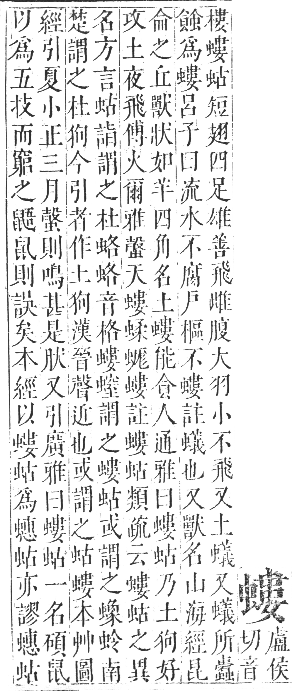 螻
盧侯
切音
樓螻蛄短翅四足雄善飛雌腹大羽小不飛又土蟻又蟻所蠹
蝕為螻呂子曰流水不腐戶樞不螻註蟻也又獸名山海經昆
侖之丘獸狀如羊四角名土螻能食人通雅曰螻蛄乃土狗好
攻土夜飛傅火爾雅螜天螻蝚蛖螻註螻蛄類疏云螻蛄之異
名方言蛄詣謂之杜蛒蛒音格螻螲謂之螻蛄或謂之蟓蛉南
楚謂之杜狗今引者作土狗漢晉聲近也或謂之蛄螻本艸圖
經引夏小正三月螜則鳴甚是肰又引廣雅曰螻蛄一名碩鼠
以為五技而窮之鼫鼠則誤矣本經以螻蛄為蟪蛄亦謬蟪蛄